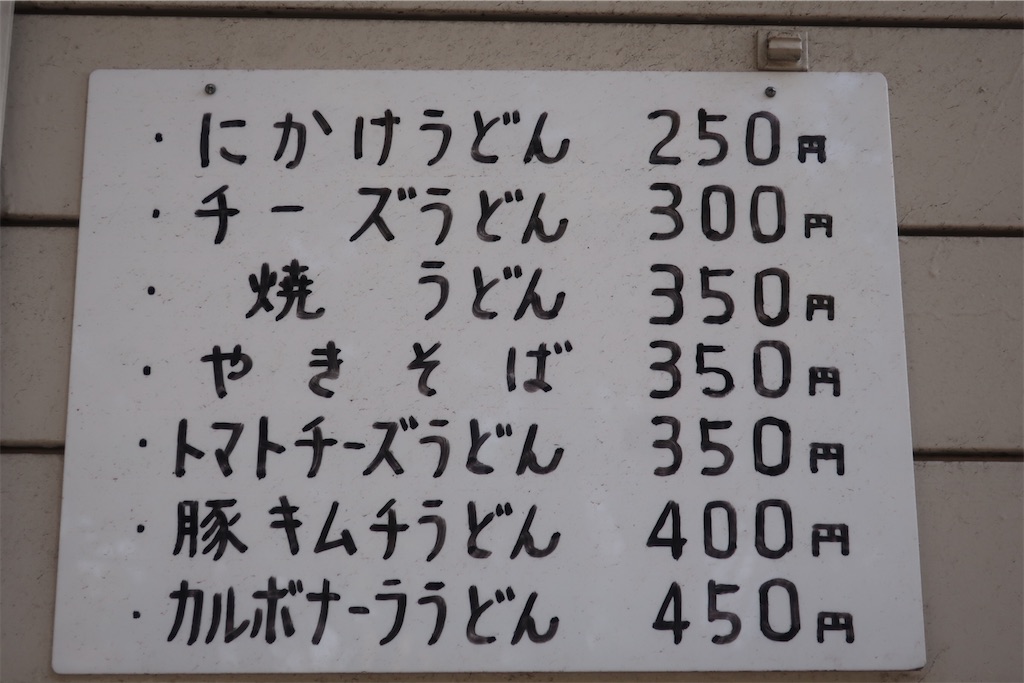 ・にかけうどん 250円
・チーズうどん 300円
・焼うどん 350円
・やきそば 350円
・トマトチーズうどん 350円
・豚キムチうどん 400円
・カルボナーラうどん 450円